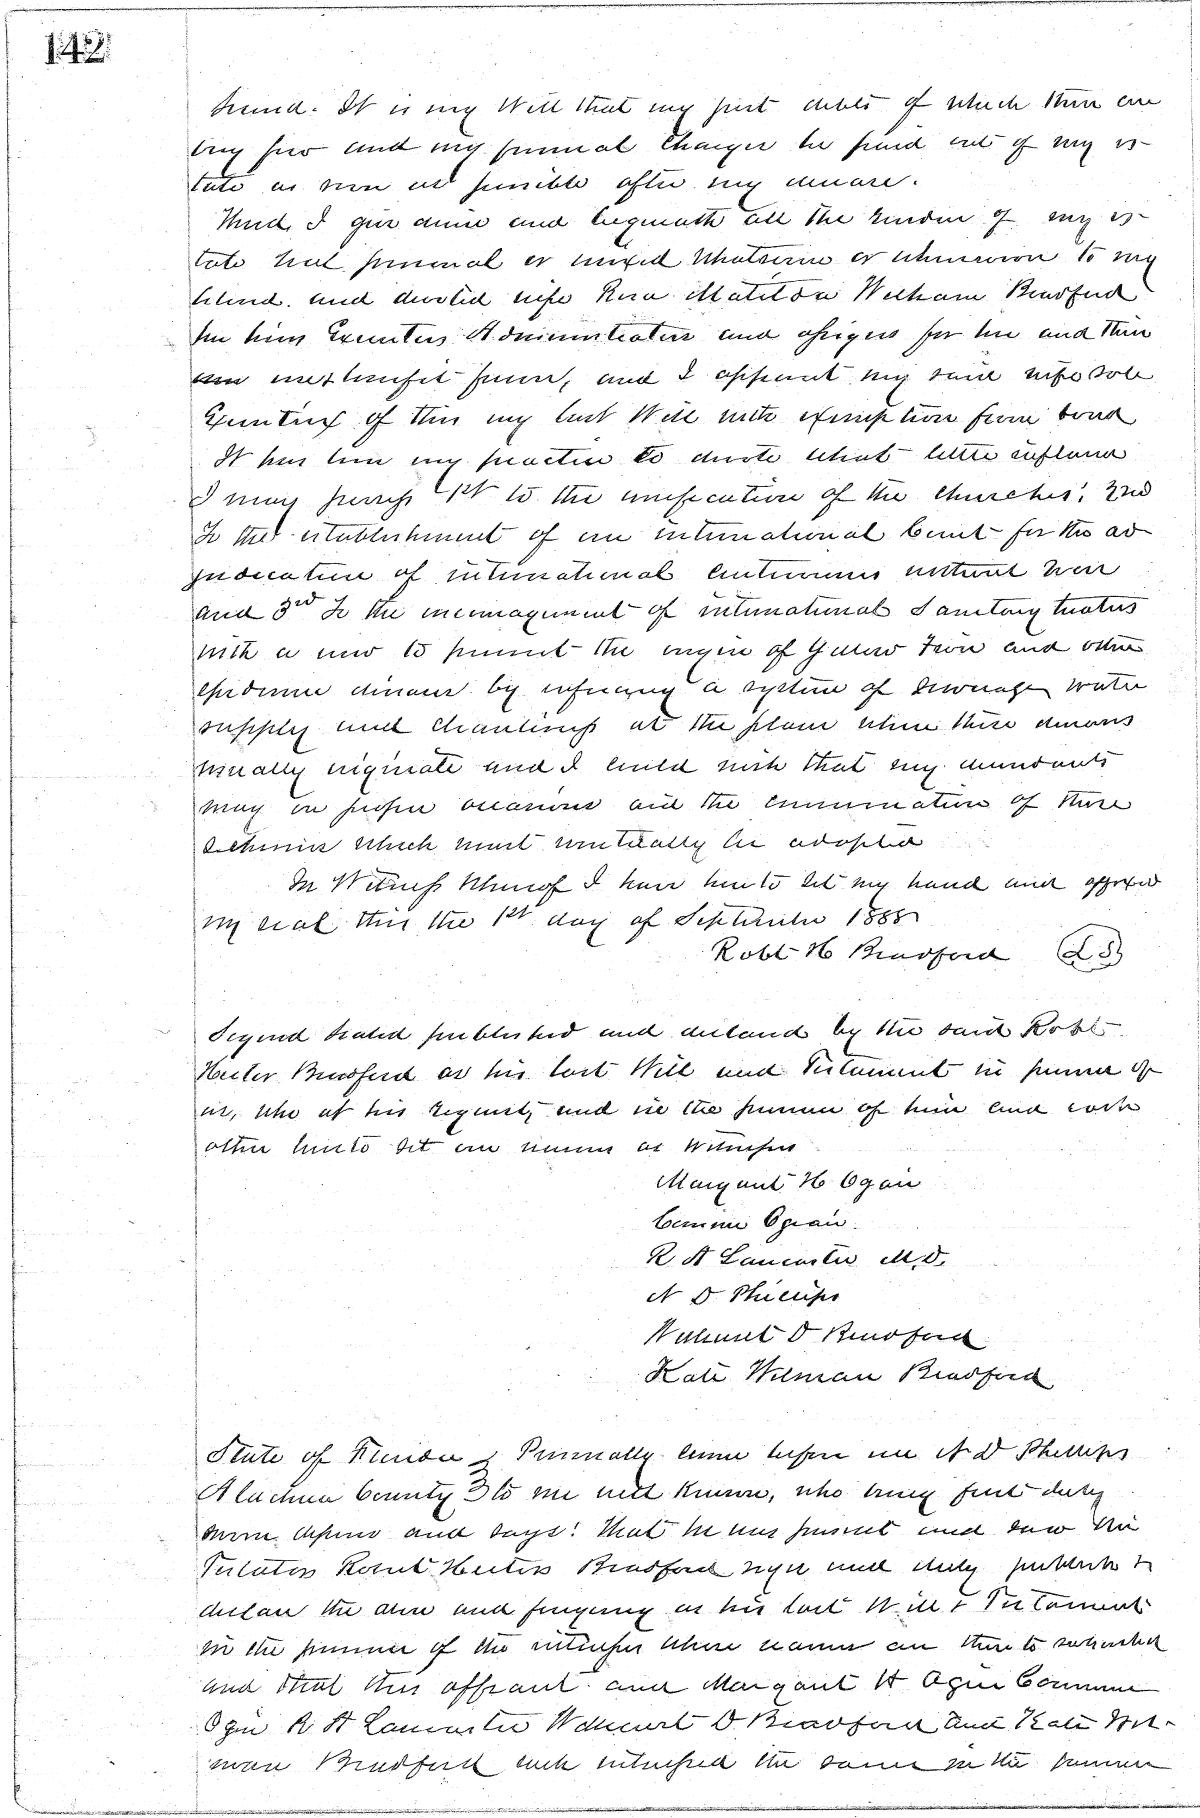 142
Second. It is my Will that my just debts of which there are
very few and my funeral Charges be paid out of my es-
tate as soon as possible after my decease.
Third, I give devise and bequeath all the residue of my es-
tate real personal or mixed whatsoever or wheresoever to my
beloved and devoted wife Rosa Matilda Bradford
her heirs Executors Administrators and assigns for her and their
own use & benefit forever, and I appoint my said wife sole
Executrix of this my last Will with exemption from bond
It has been my practice to devote what little influence
I may possess 1st to the unification of the Churches, 2nd
To the establishment of an international Court for the ad-
judication of international controversies without war
and 3rd To the encouragement of international Sanitary treatys
with a view to prevent the origin of Yellow Fever and other
epidemic diseases by enforcing a system of Sewerage water
supply and cleanliness at the places where these diseases
usually originate and I could wish that my descendants
may on proper occasions aid the consummation of these
schemes which must eventually be adopted
In Witness Whereof I have hereto set my hand and affixed
my seal this the 1st day of September 1888
Robt H Bradford L S
Signed sealed published and declared by the said Robt
Bradford as his last Will and Testament in presence of
us, who at his request, and in the presence of him and each
other hereto set our names as Witnesses
Margaret H
R A Lancaster M.D.
N D Phillips
D Bradford
Kate Wilman Bradford
State of Florida } Personally came before me N D Phillips
Alachua County } to me well known, who being first duly
sworn deposes and says: that he was present and saw the
Testator Robert Bradford sign and duly publish &
declare the above and foregoing as his last Will & Testament
in the presence of the witnesses whose names are thereto subscribed
and that this affiant and Margaret H
R A Lancaster D. Bradford and Kate Wil-
man Bradford each witnessed the same in the presence